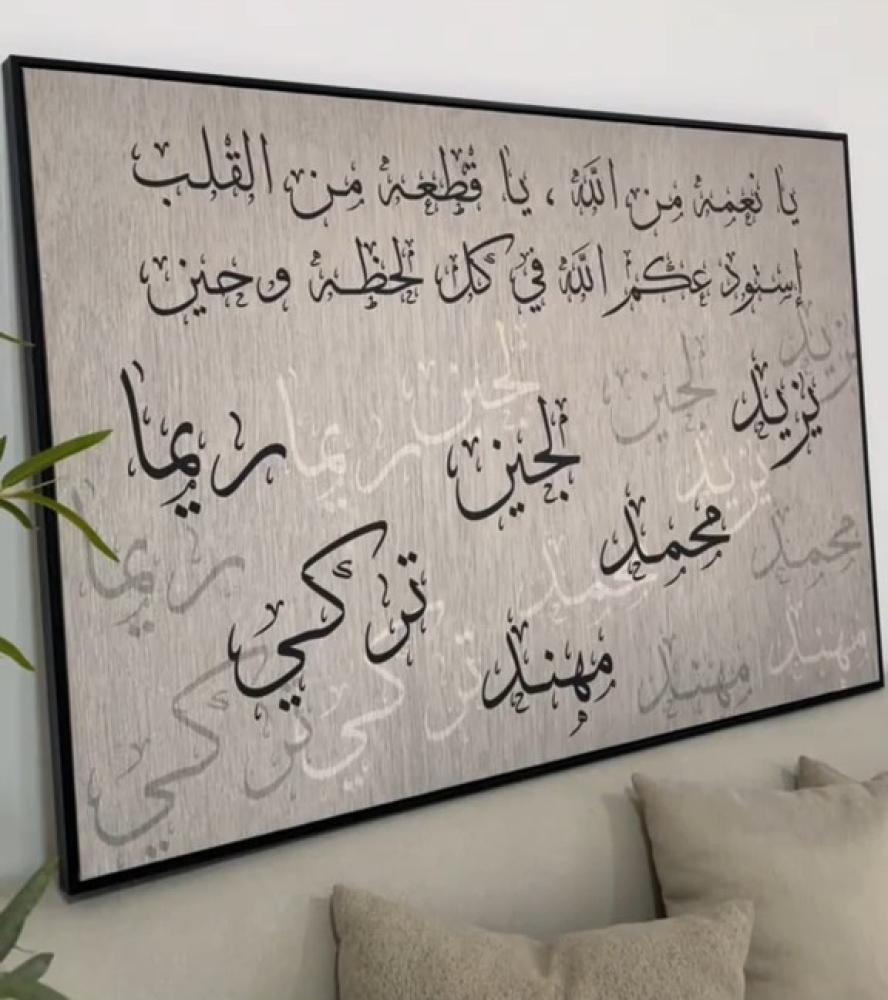 يا نعمه من الله ، يا قطعه من القلب
إستودعكم الله في كل لحظه وحين
يزيد
لجين
ريما
محمد
تركي
مهند
يزيد
لجين
لجين
ريما
يزيد
محمد
محمد
ريما
مهند
مهند
تركي
تركي